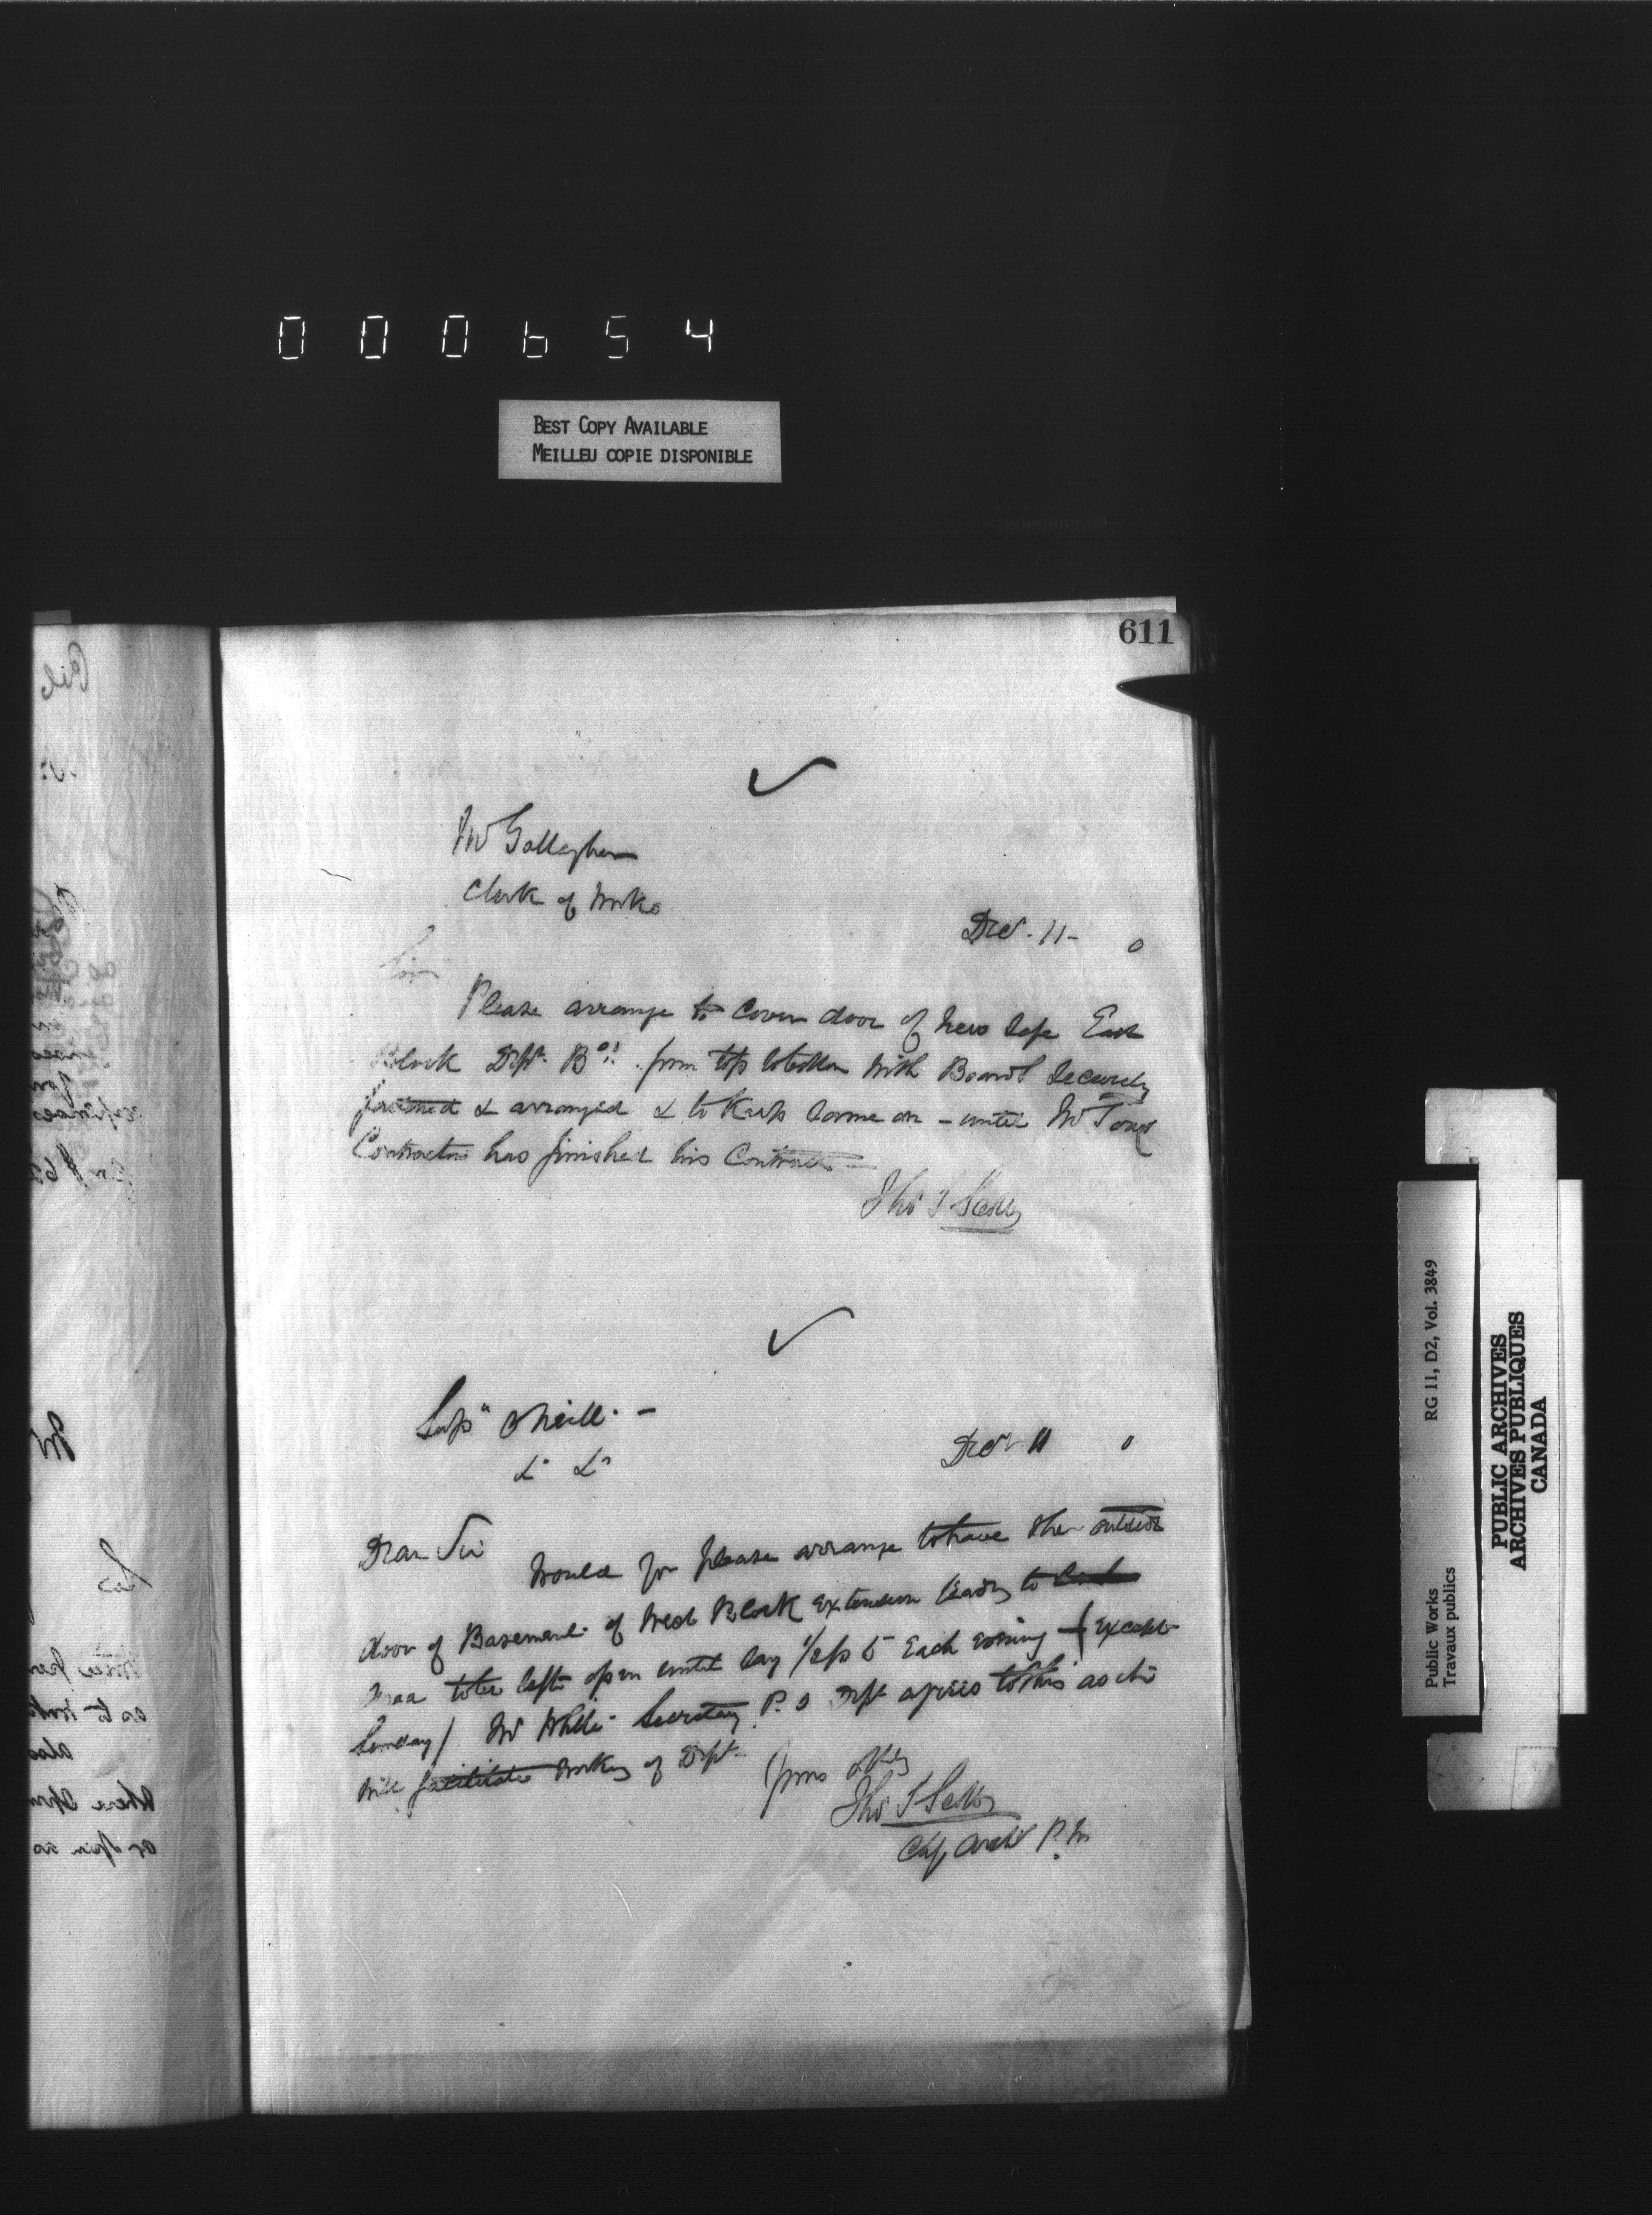 000654
BEST COPY AVAILABLE
MEILLEU COPIE DISPONIBLE
611
Mr Gallagher
Clerk of Works
Decr. 11-
Sir
Please arrange to cover door of new safe East
Block Dept. from top to bottom with Boards securely
fastened & arranged & to keep same on - until Mr
Contractor has finished his Contract -
Thos S Scott
Supt O'Neill -
Decr 11
Dear Sir
Would you please arrange to have the outside
door of Basement of West Block extension leading to
to be left open until say 1/2 p 5 Each evening (Except
Sunday) Mr White Secretary P. O Dept agrees to this as it
will facilitate working of Dept
Yours
Thos S Scott
Chf Archt P. W
RG 11, D2, Vol. 3849
Public Works
Travaux publics
PUBLIC ARCHIVES
ARCHIVES PUBLIQUES
CANADA